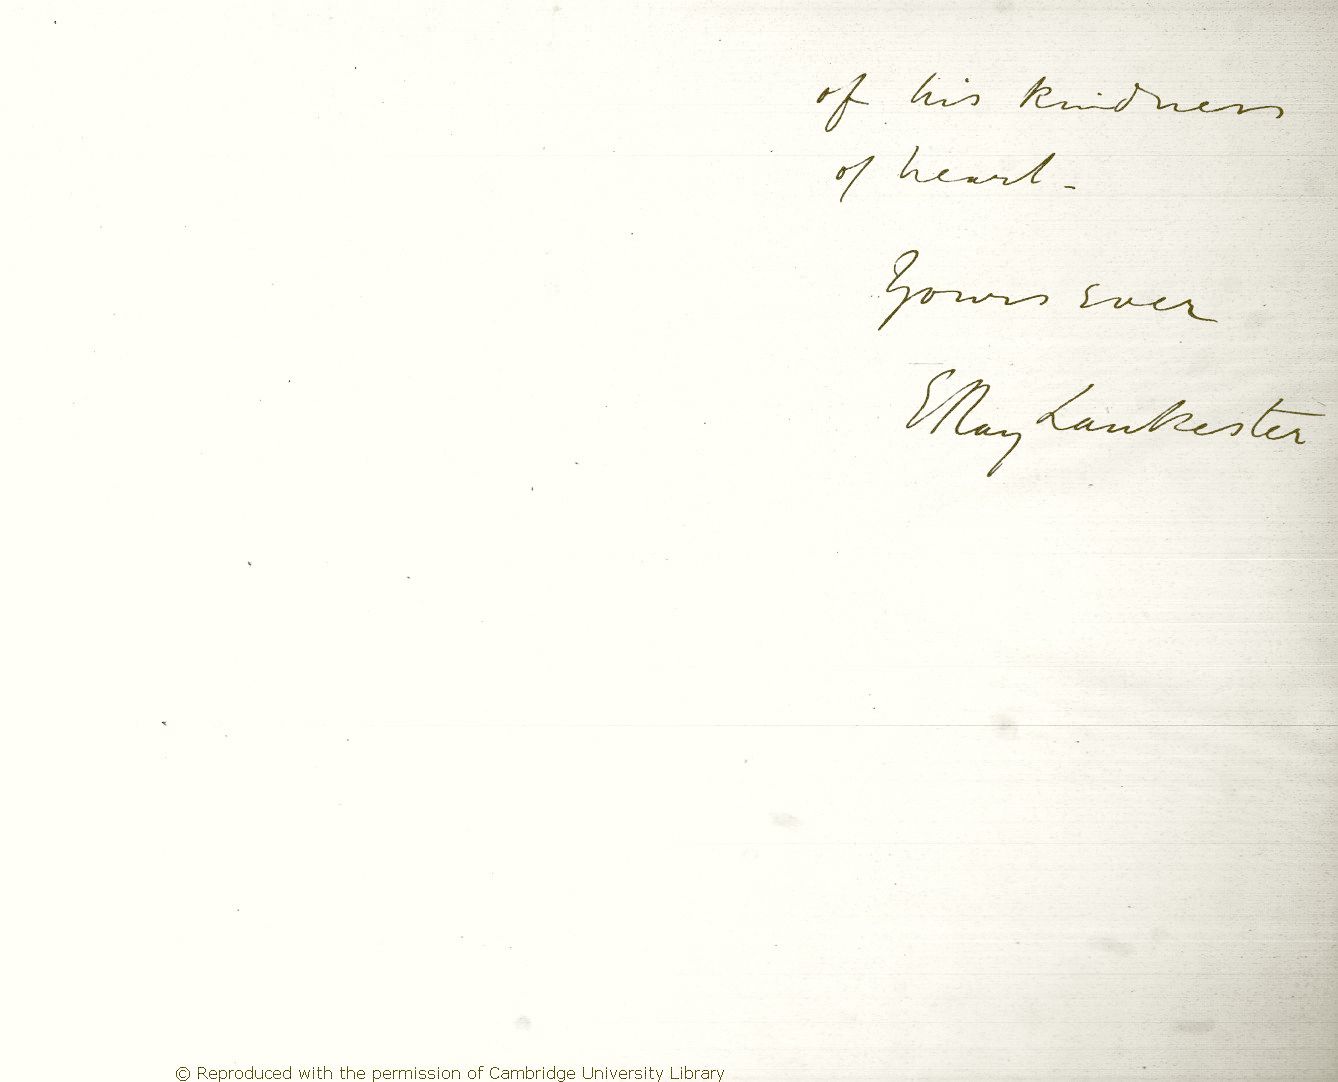 of his kindness
of heart –
Yours ever
E Ray Lankester
© Reproduced with the permission of Cambridge University Library